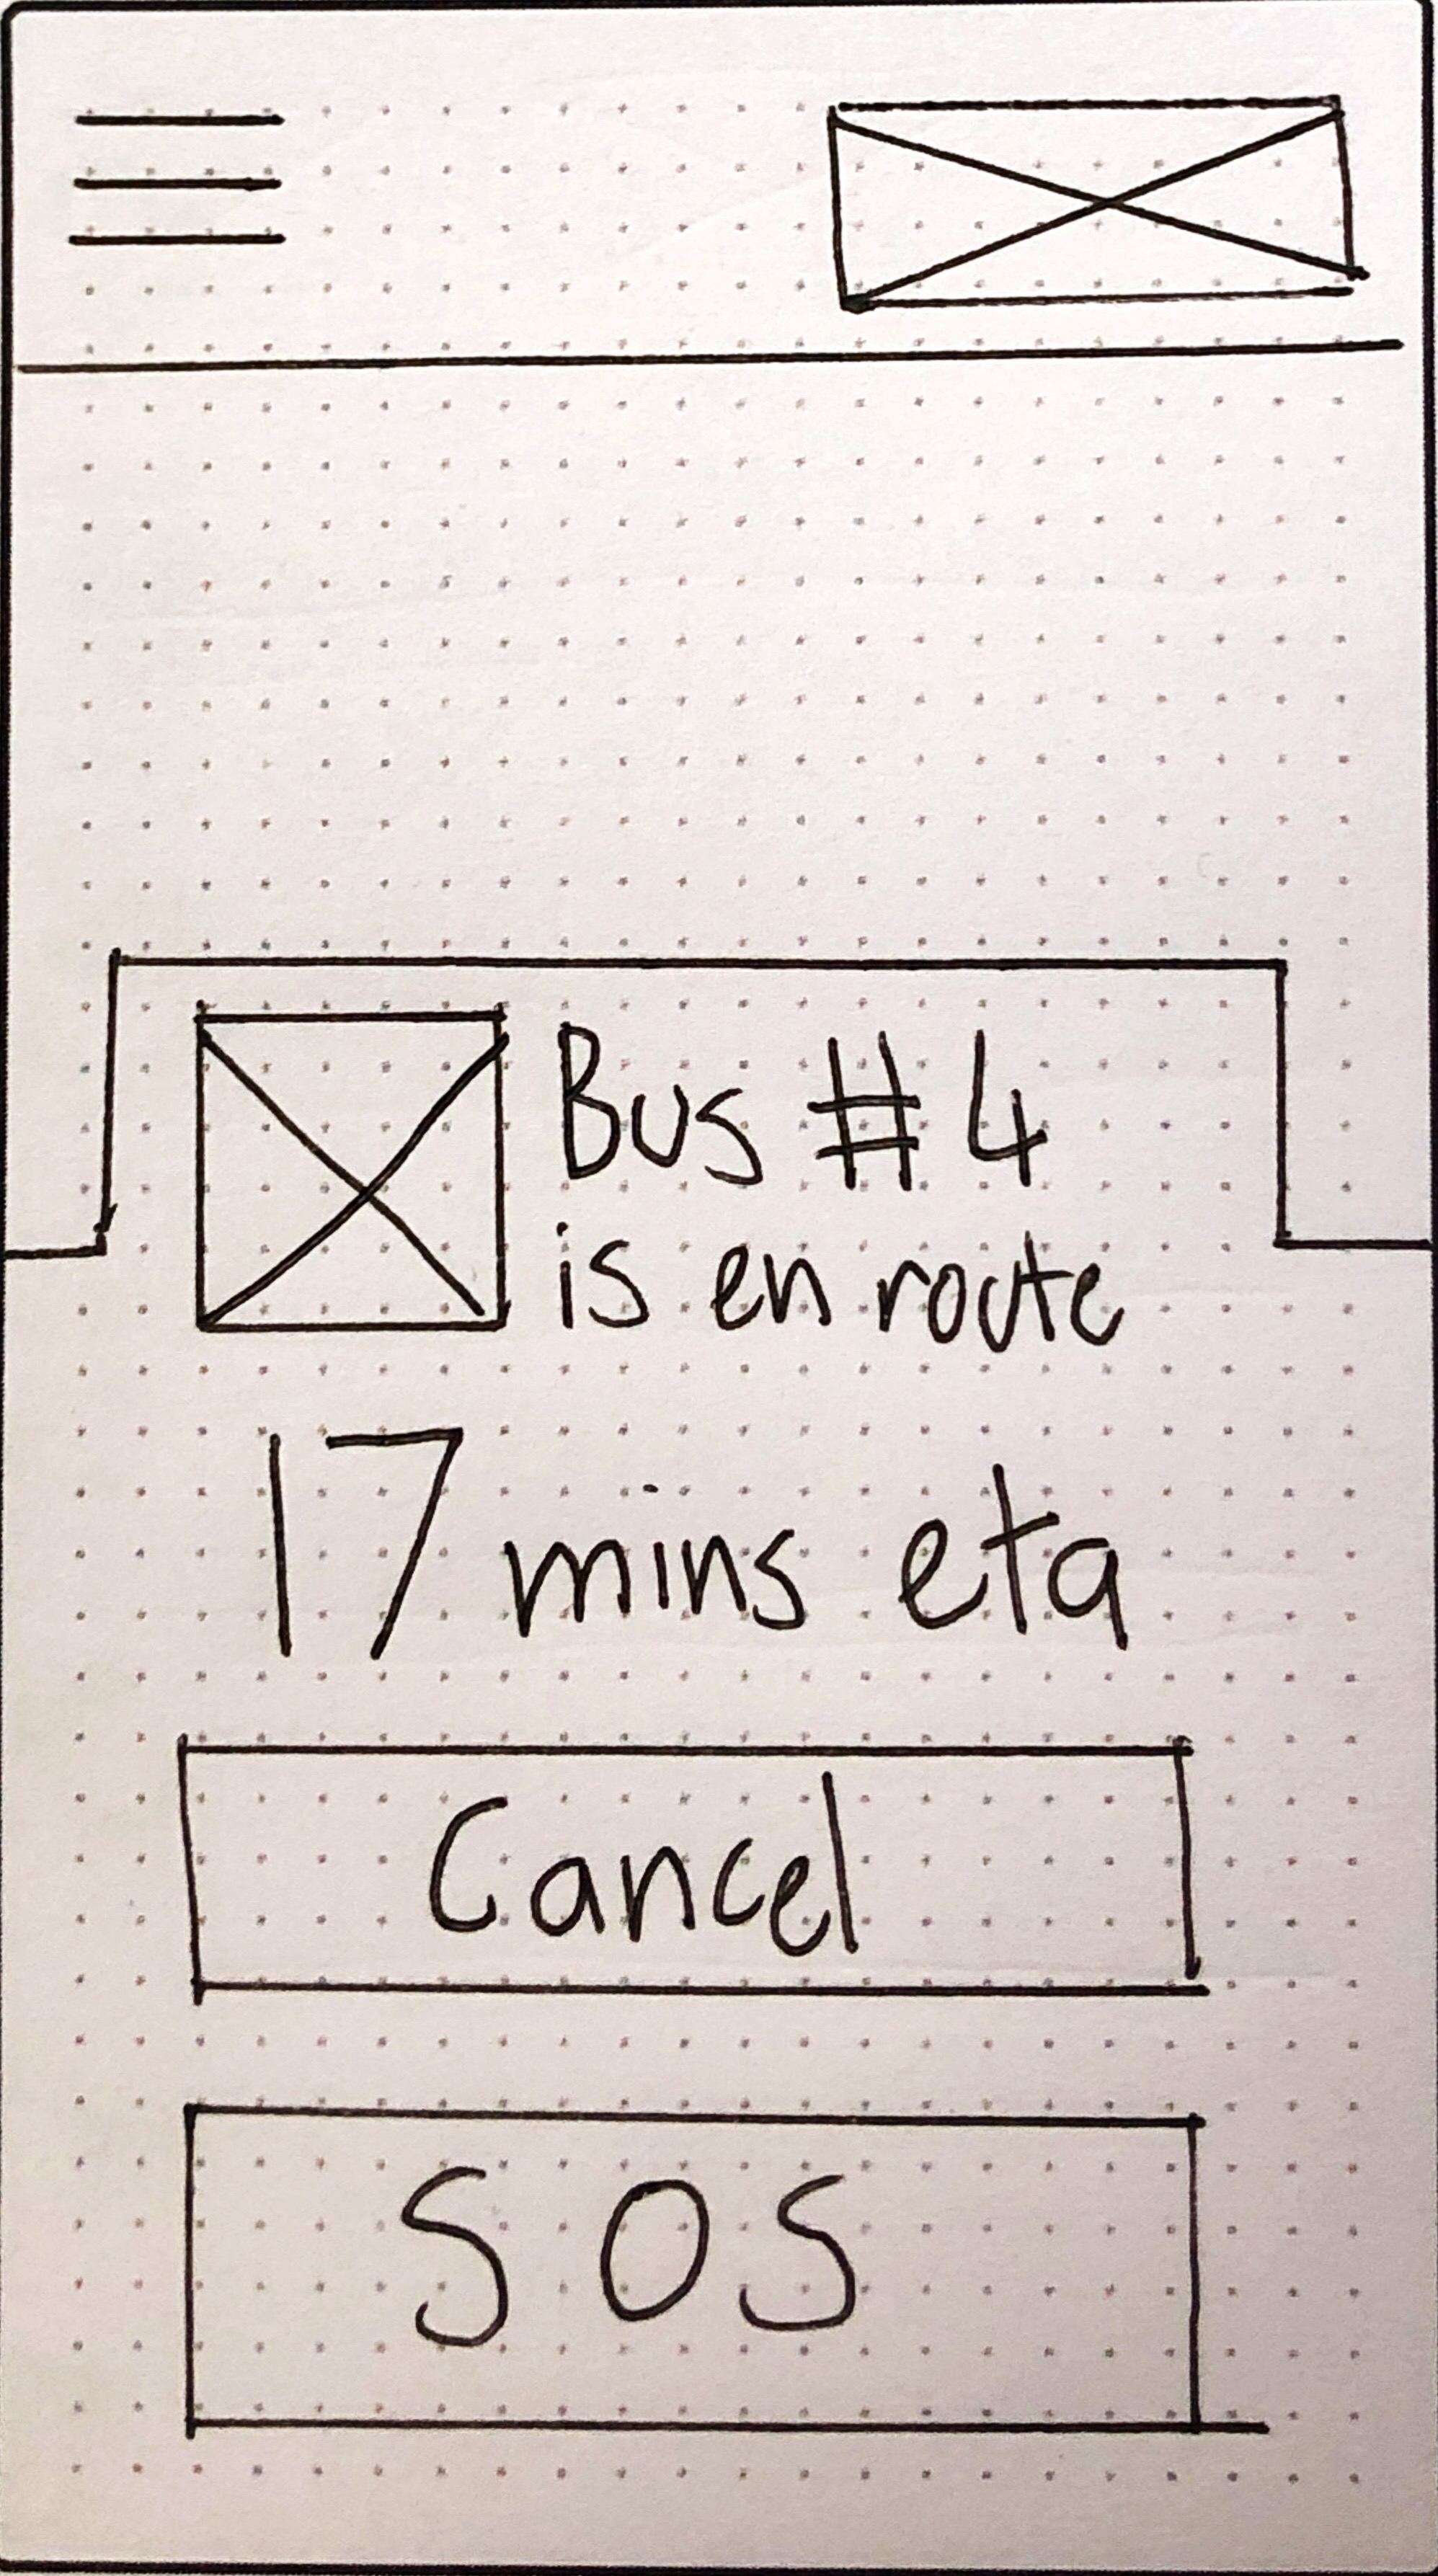 Bus #4
is en route
17 mins eta
Cancel
SOS